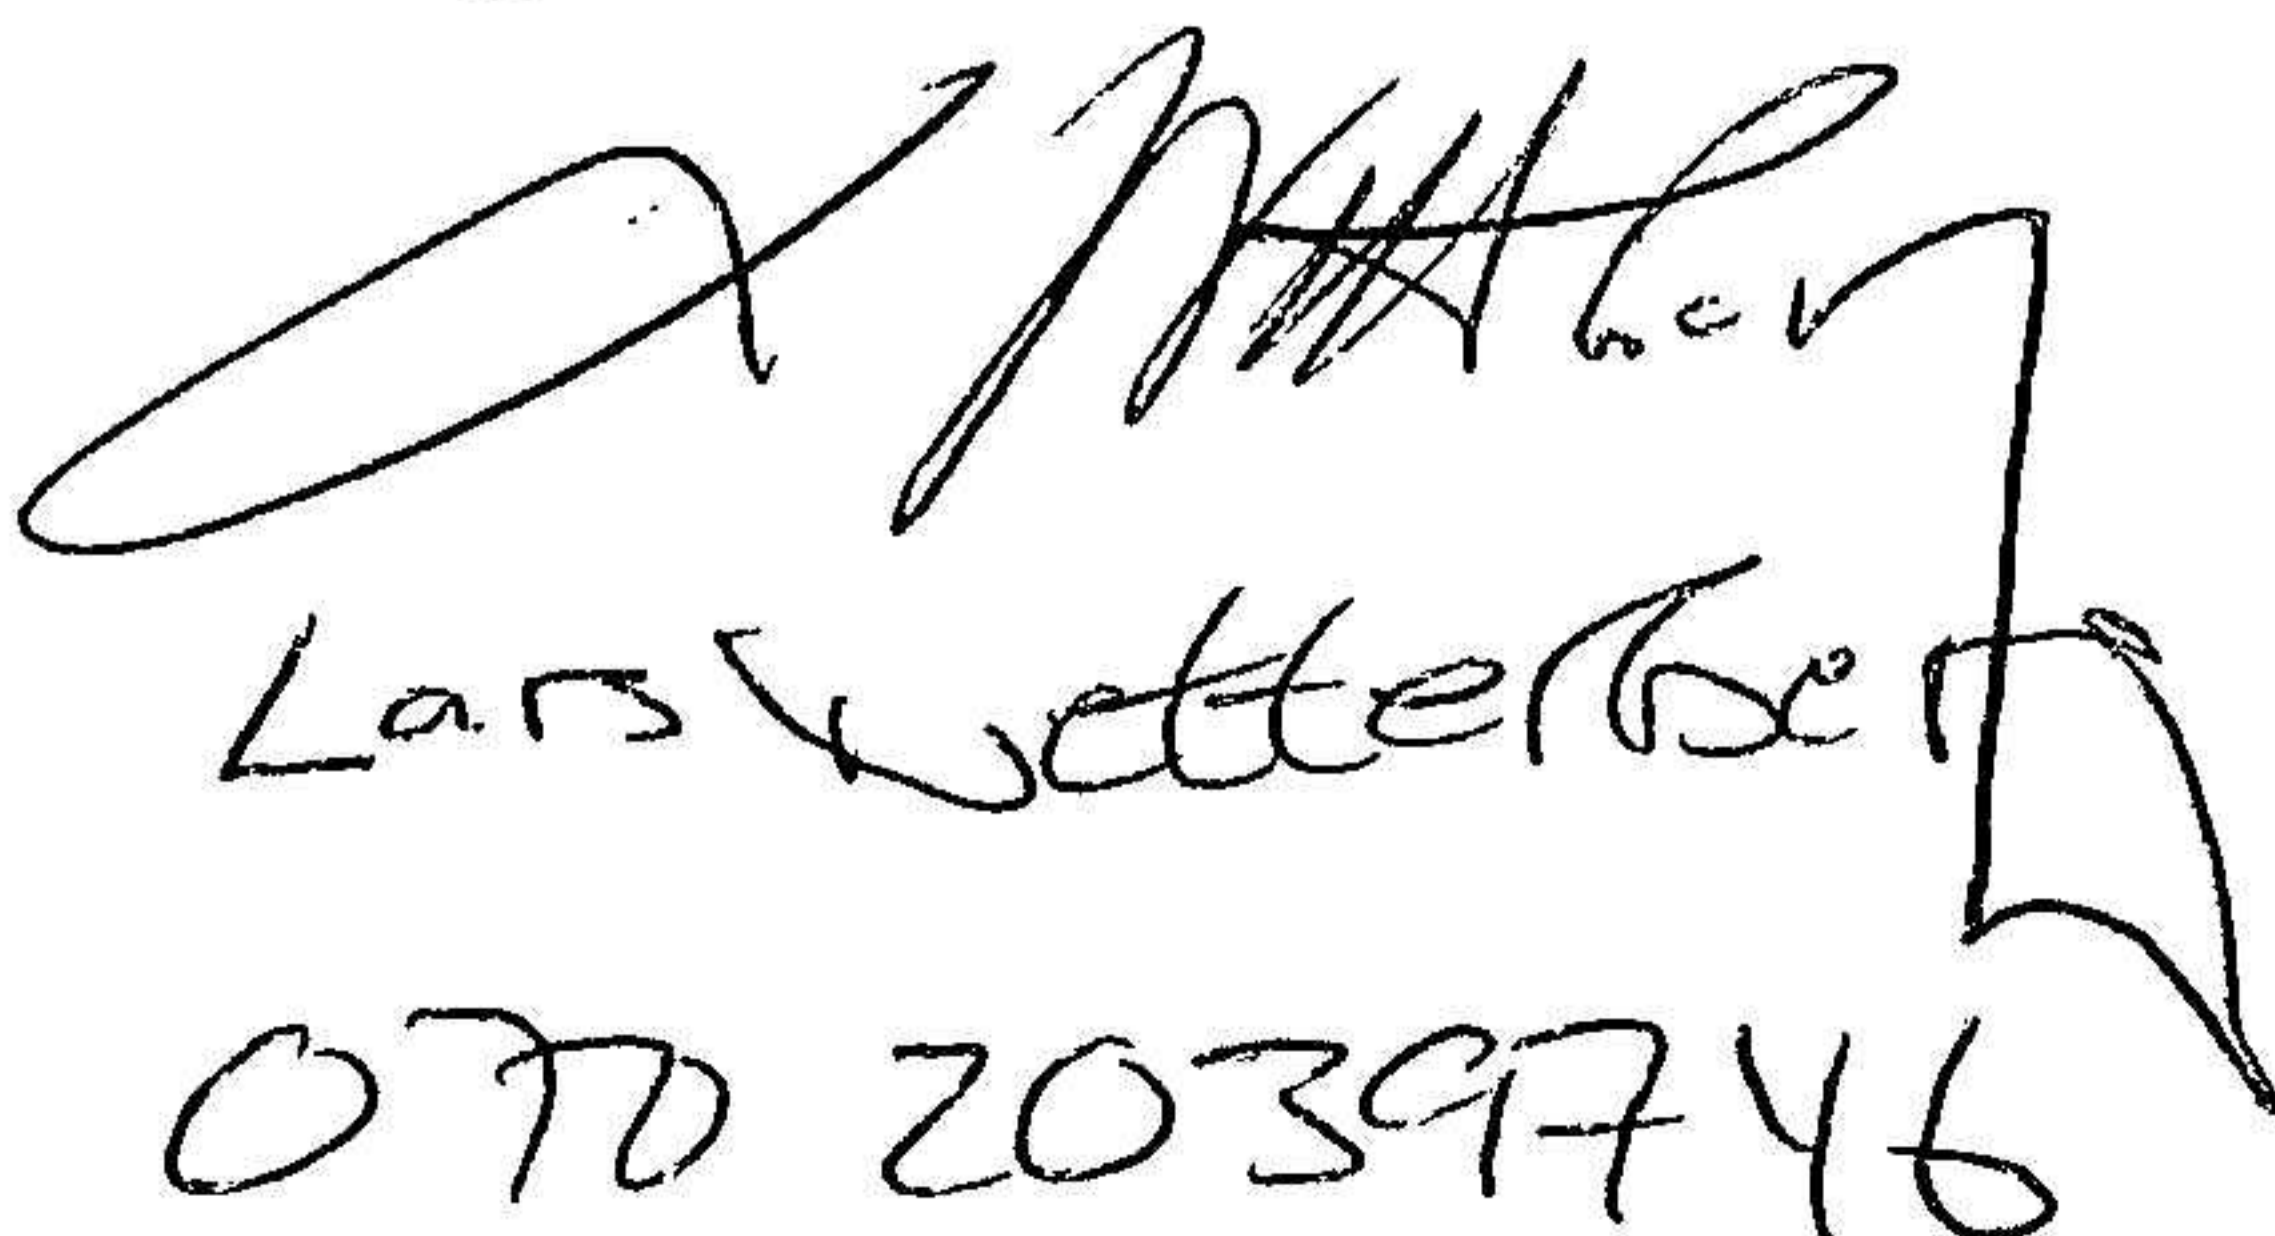 Lars Wetterberg
070 2039746